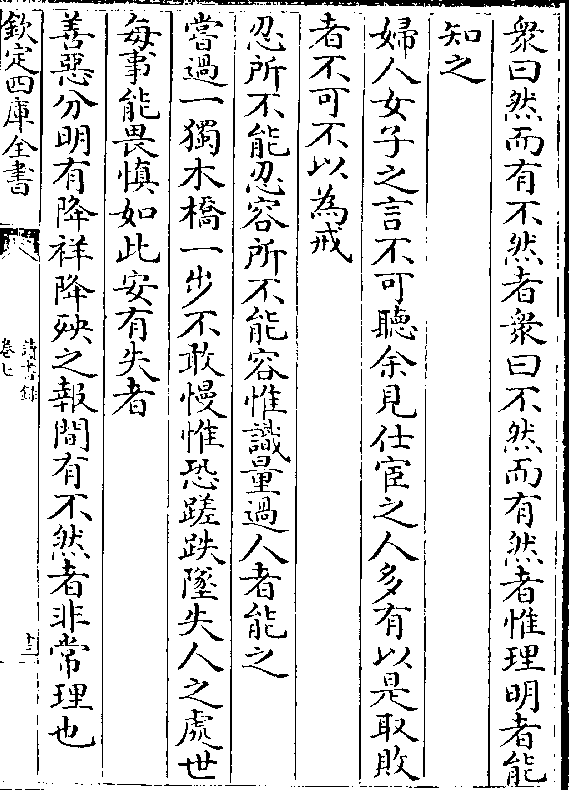 衆曰然而有不然者衆曰不然而有然者惟理明者能
知之
婦人女子之言不可聽余見仕宦之人多有以是取敗
者不可不以為戒
忍所不能忍容所不能容惟識量過人者能之
嘗過一獨木橋一步不敢慢惟恐蹉跌墜失人之處世
每事能畏慎如此安有失者
善惡分明有降祥降殃之報間有不然者非常理也
欽定四庫全書
讀書録
卷七
十三